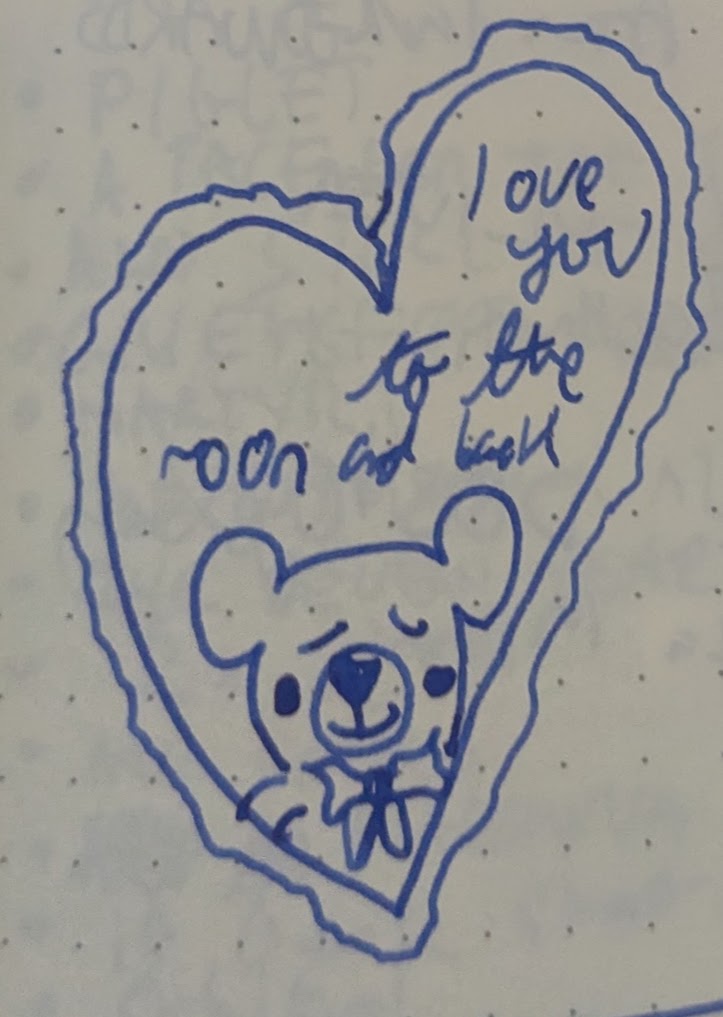 I love
you
to the
moon and back